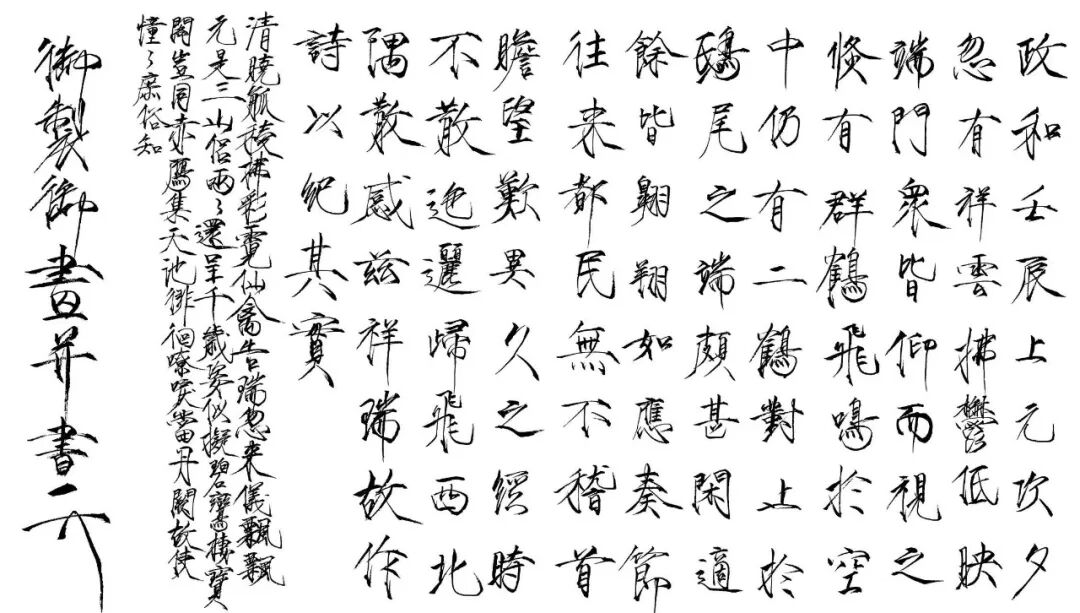 政和壬辰上元次夕
忽有祥雲拂鬱低映
端門衆皆仰而視之
倏有群鶴飛鳴於空
中仍有二鶴對止於
鴟尾之端頗甚閑適
餘皆翱翔如應奏節
往來都民無不稽首
瞻望歎異久之經時
不散迤邐歸飛西北
隅散感茲祥瑞故作
詩以紀其實
清曉觚稜拂彩霓仙禽告瑞忽來儀飄飄
元是三山侶兩〻還呈千歲姿似擬碧鸞棲寶
閣豈同赤鴈集天池徘徊嘹唳當丹闕故使
憧〻庶俗知
御製御畫并書